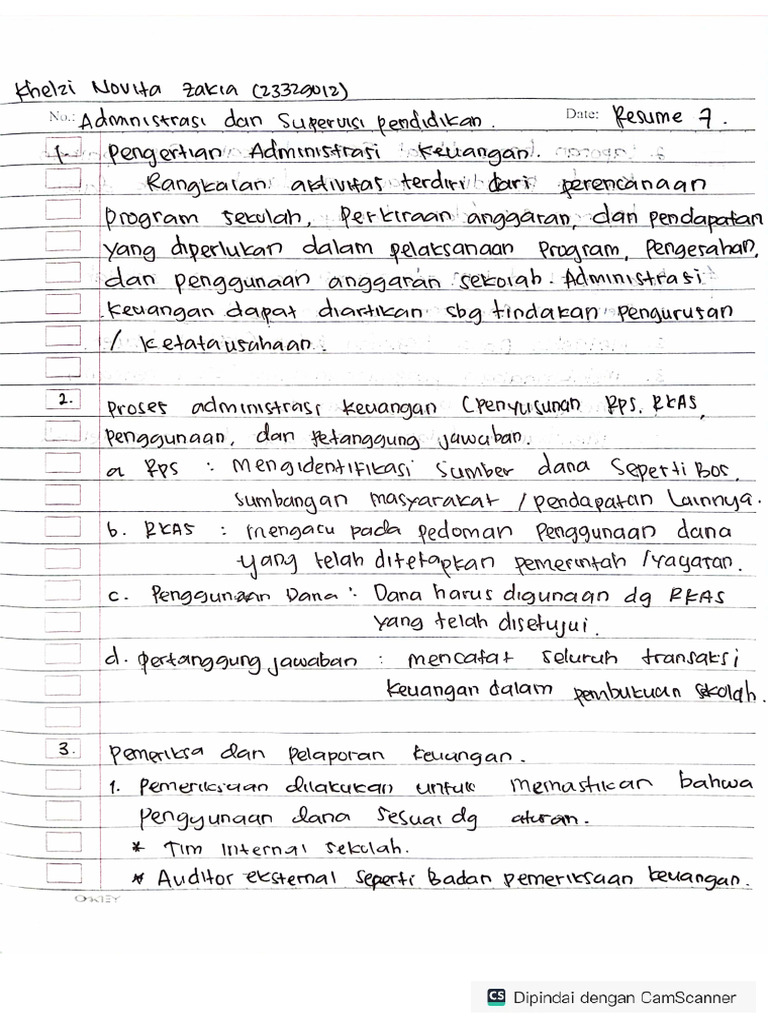 Khelzi Novita Zakia (23329012)
No.: Administrasi dan Supervisi pendidikan. Date: Resume 7.
1. Pengertian Administrasi Keuangan.
Rangkaian aktivitas terdiri dari perencanaan
program sekolah, perkiraan anggaran, dan pendapatan
yang diperlukan dalam pelaksanaan program, Pengesahan,
dan penggunaan anggaran sekolah. Administrasi
keuangan dapat diartikan sbg tindakan pengurusan
/ ketatausahaan.
2. Proses administrasi keuangan (penyusunan RPS, RKAS,
penggunaan, dan Petanggung jawaban.
a RPS : Mengidentifikasi Sumber dana Seperti Bos,
sumbangan masyarakat / pendapatan lainnya.
b. RKAS : mengacu pada pedoman Penggunaan dana
yang telah ditetapkan pemerintah / yayasan.
c. Penggunaan Dana : Dana harus digunaan dg RKAS
yang telah disetujui.
d. pertanggung jawaban : mencatat seluruh transaksi
keuangan dalam pembukuan sekolah.
3. pemeriksa dan pelaporan keuangan.
1. Pemeriksaan dilakukan untuk memastikan bahwa
penggunaan dana sesuai dg aturan.
* Tim internal sekolah.
* Auditor eksternal seperti Badan pemeriksaan keuangan.
CS Dipindai dengan CamScanner